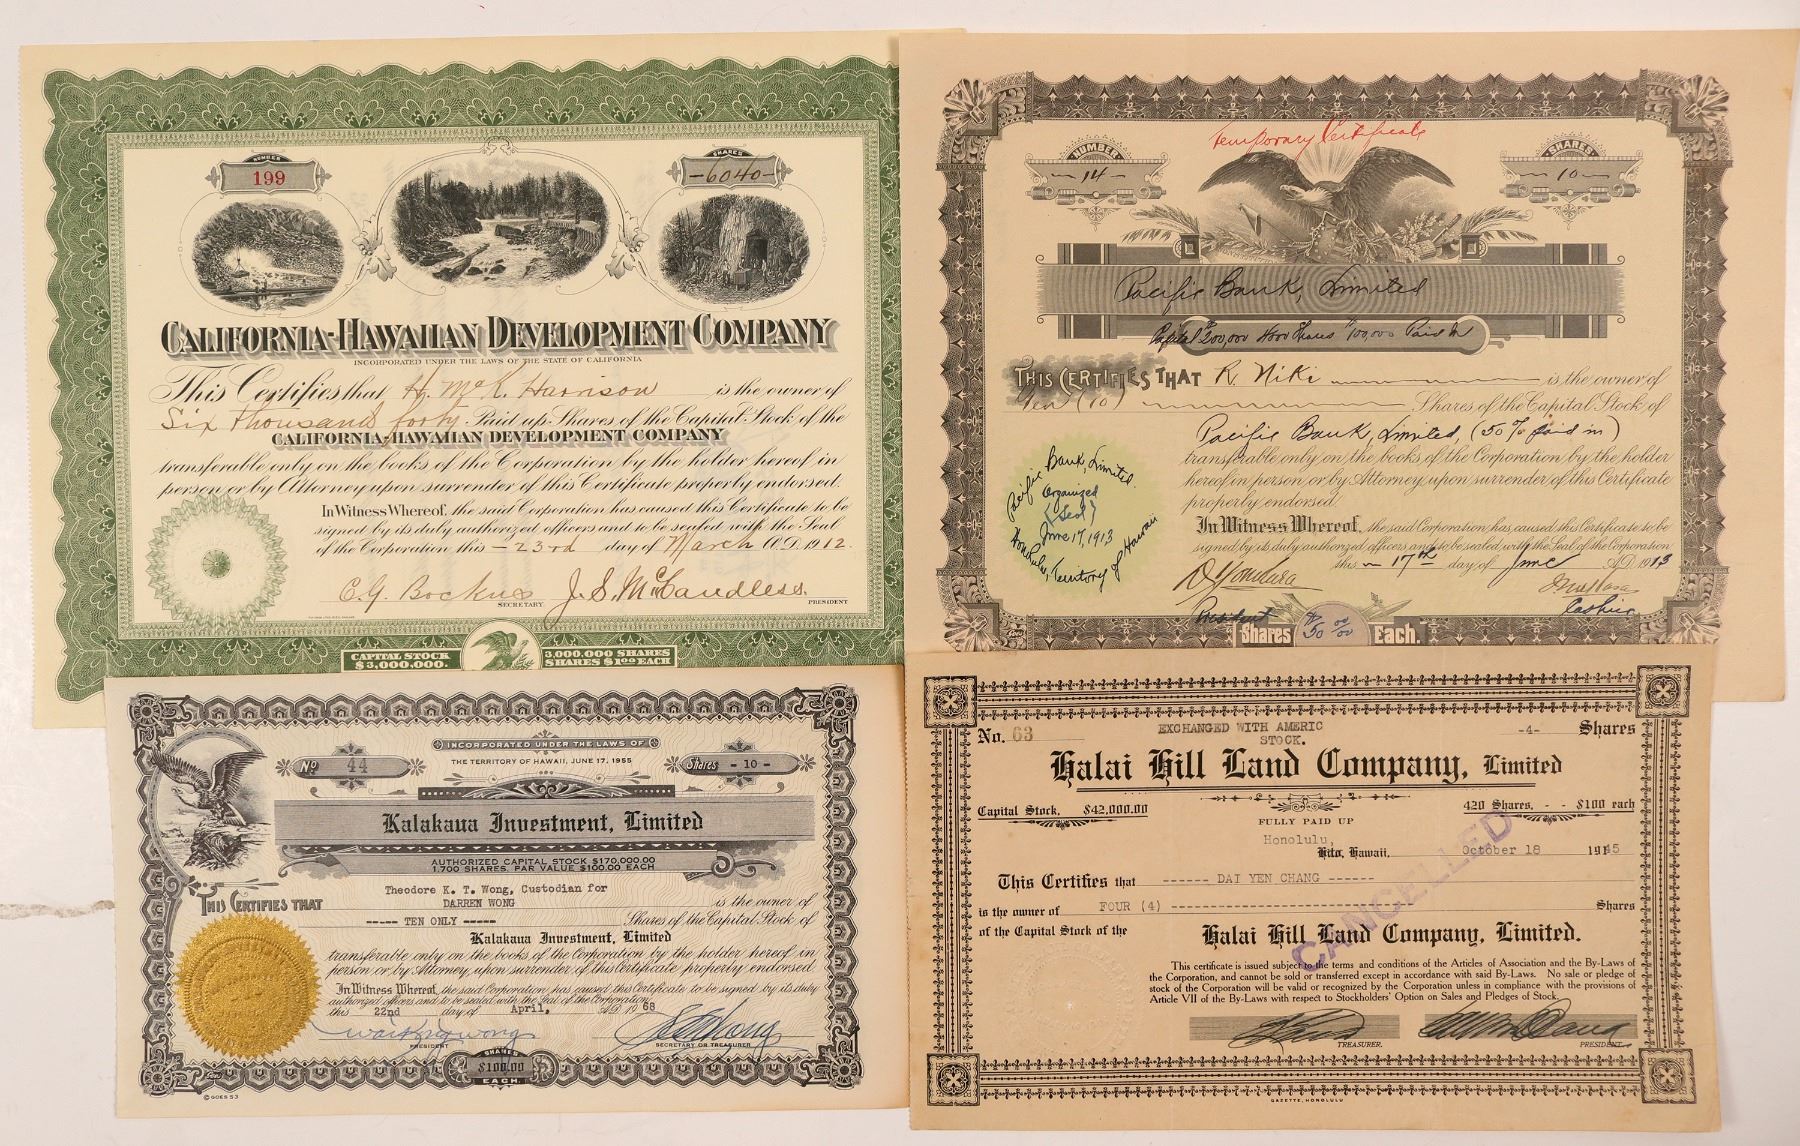 NUMBER
199
SHARES
-6040-
CALIFORNIA-HAWAIIAN DEVELOPMENT COMPANY
INCORPORATED UNDER THE LAWS OF THE STATE OF CALIFORNIA
This Certifies that H. McK. Harrison is the owner of
Six thousand forty Paid up Shares of the Capital Stock of the
CALIFORNIA-HAWAIIAN DEVELOPMENT COMPANY
transferable only on the books of the Corporation by the holder hereof in
person or by Attorney upon surrender of this Certificate properly endorsed.
In Witness Whereof, the said Corporation has caused this Certificate to be
signed by its duly authorized officers and to be sealed with the Seal
of the Corporation this -23rd day of March A.D. 1912.
C. G. Bockus J. S. McCandless.
SECRETARY PRESIDENT
CAPITAL STOCK
$3,000,000.
3,000,000 SHARES
SHARES $1.00 EACH
Temporary Certificate
NUMBER
14
SHARES
10
Pacific Bank, Limited
Capital $200,000 4000 Shares $100,000 Paid in
THIS CERTIFIES THAT R. Niki is the owner of
Ten (10) Shares of the Capital Stock of
Pacific Bank, Limited, (50% paid in)
transferable only on the books of the Corporation by the holder
hereof in person or by Attorney upon surrender of this Certificate
properly endorsed.
In Witness Whereof, the said Corporation has caused this Certificate to be
signed by its duly authorized officers and to be sealed with the Seal of the Corporation
this 17th day of June A.D. 1913
Pacific Bank, Limited.
Organized
(Seal)
June 17, 1913
Honolulu, Territory of Hawaii
President
Cashier
Shares $50 00/00 Each.
GOES
INCORPORATED UNDER THE LAWS OF
THE TERRITORY OF HAWAII, JUNE 17, 1955
No 44
Shares - 10 -
Kalakaua Investment, Limited
AUTHORIZED CAPITAL STOCK $170,000.00
1,700 SHARES, PAR VALUE $100.00 EACH
Theodore K. T. Wong, Custodian for
THIS CERTIFIES THAT DARREN WONG is the owner of
----- TEN ONLY ----- Shares of the Capital Stock of
Kalakaua Investment, Limited
transferable only on the books of the Corporation by the holder hereof in
person or by Attorney upon surrender of this Certificate properly endorsed.
In Witness Whereof, the said Corporation has caused this Certificate to be signed by its duly
authorized officers and to be sealed with the Seal of the Corporation
this 22nd day of April, A.D. 1968
PRESIDENT
SECRETARY OR TREASURER
SHARES
$100.00
EACH
GOES
© GOES 53
No. 63
EXCHANGED WITH AMERIC
STOCK.
-4- Shares
Halai Hill Land Company, Limited
Capital Stock, $42,000.00
420 Shares, - - $100 each
FULLY PAID UP
Honolulu,
Hilo, Hawaii, October 18 1945
This Certifies that ------ DAI YEN CHANG ------
is the owner of FOUR (4) ------ Shares
of the Capital Stock of the Halai Hill Land Company, Limited.
CANCELLED
This certificate is issued subject to the terms and conditions of the Articles of Association and the By-Laws of
the Corporation, and cannot be sold or transferred except in accordance with said By-Laws. No sale or pledge of
stock of the Corporation will be valid or recognized by the Corporation unless in compliance with the provisions of
Article VII of the By-Laws with respect to Stockholders' Option on Sales and Pledges of Stock.
TREASURER.
PRESIDENT.
GAZETTE, HONOLULU